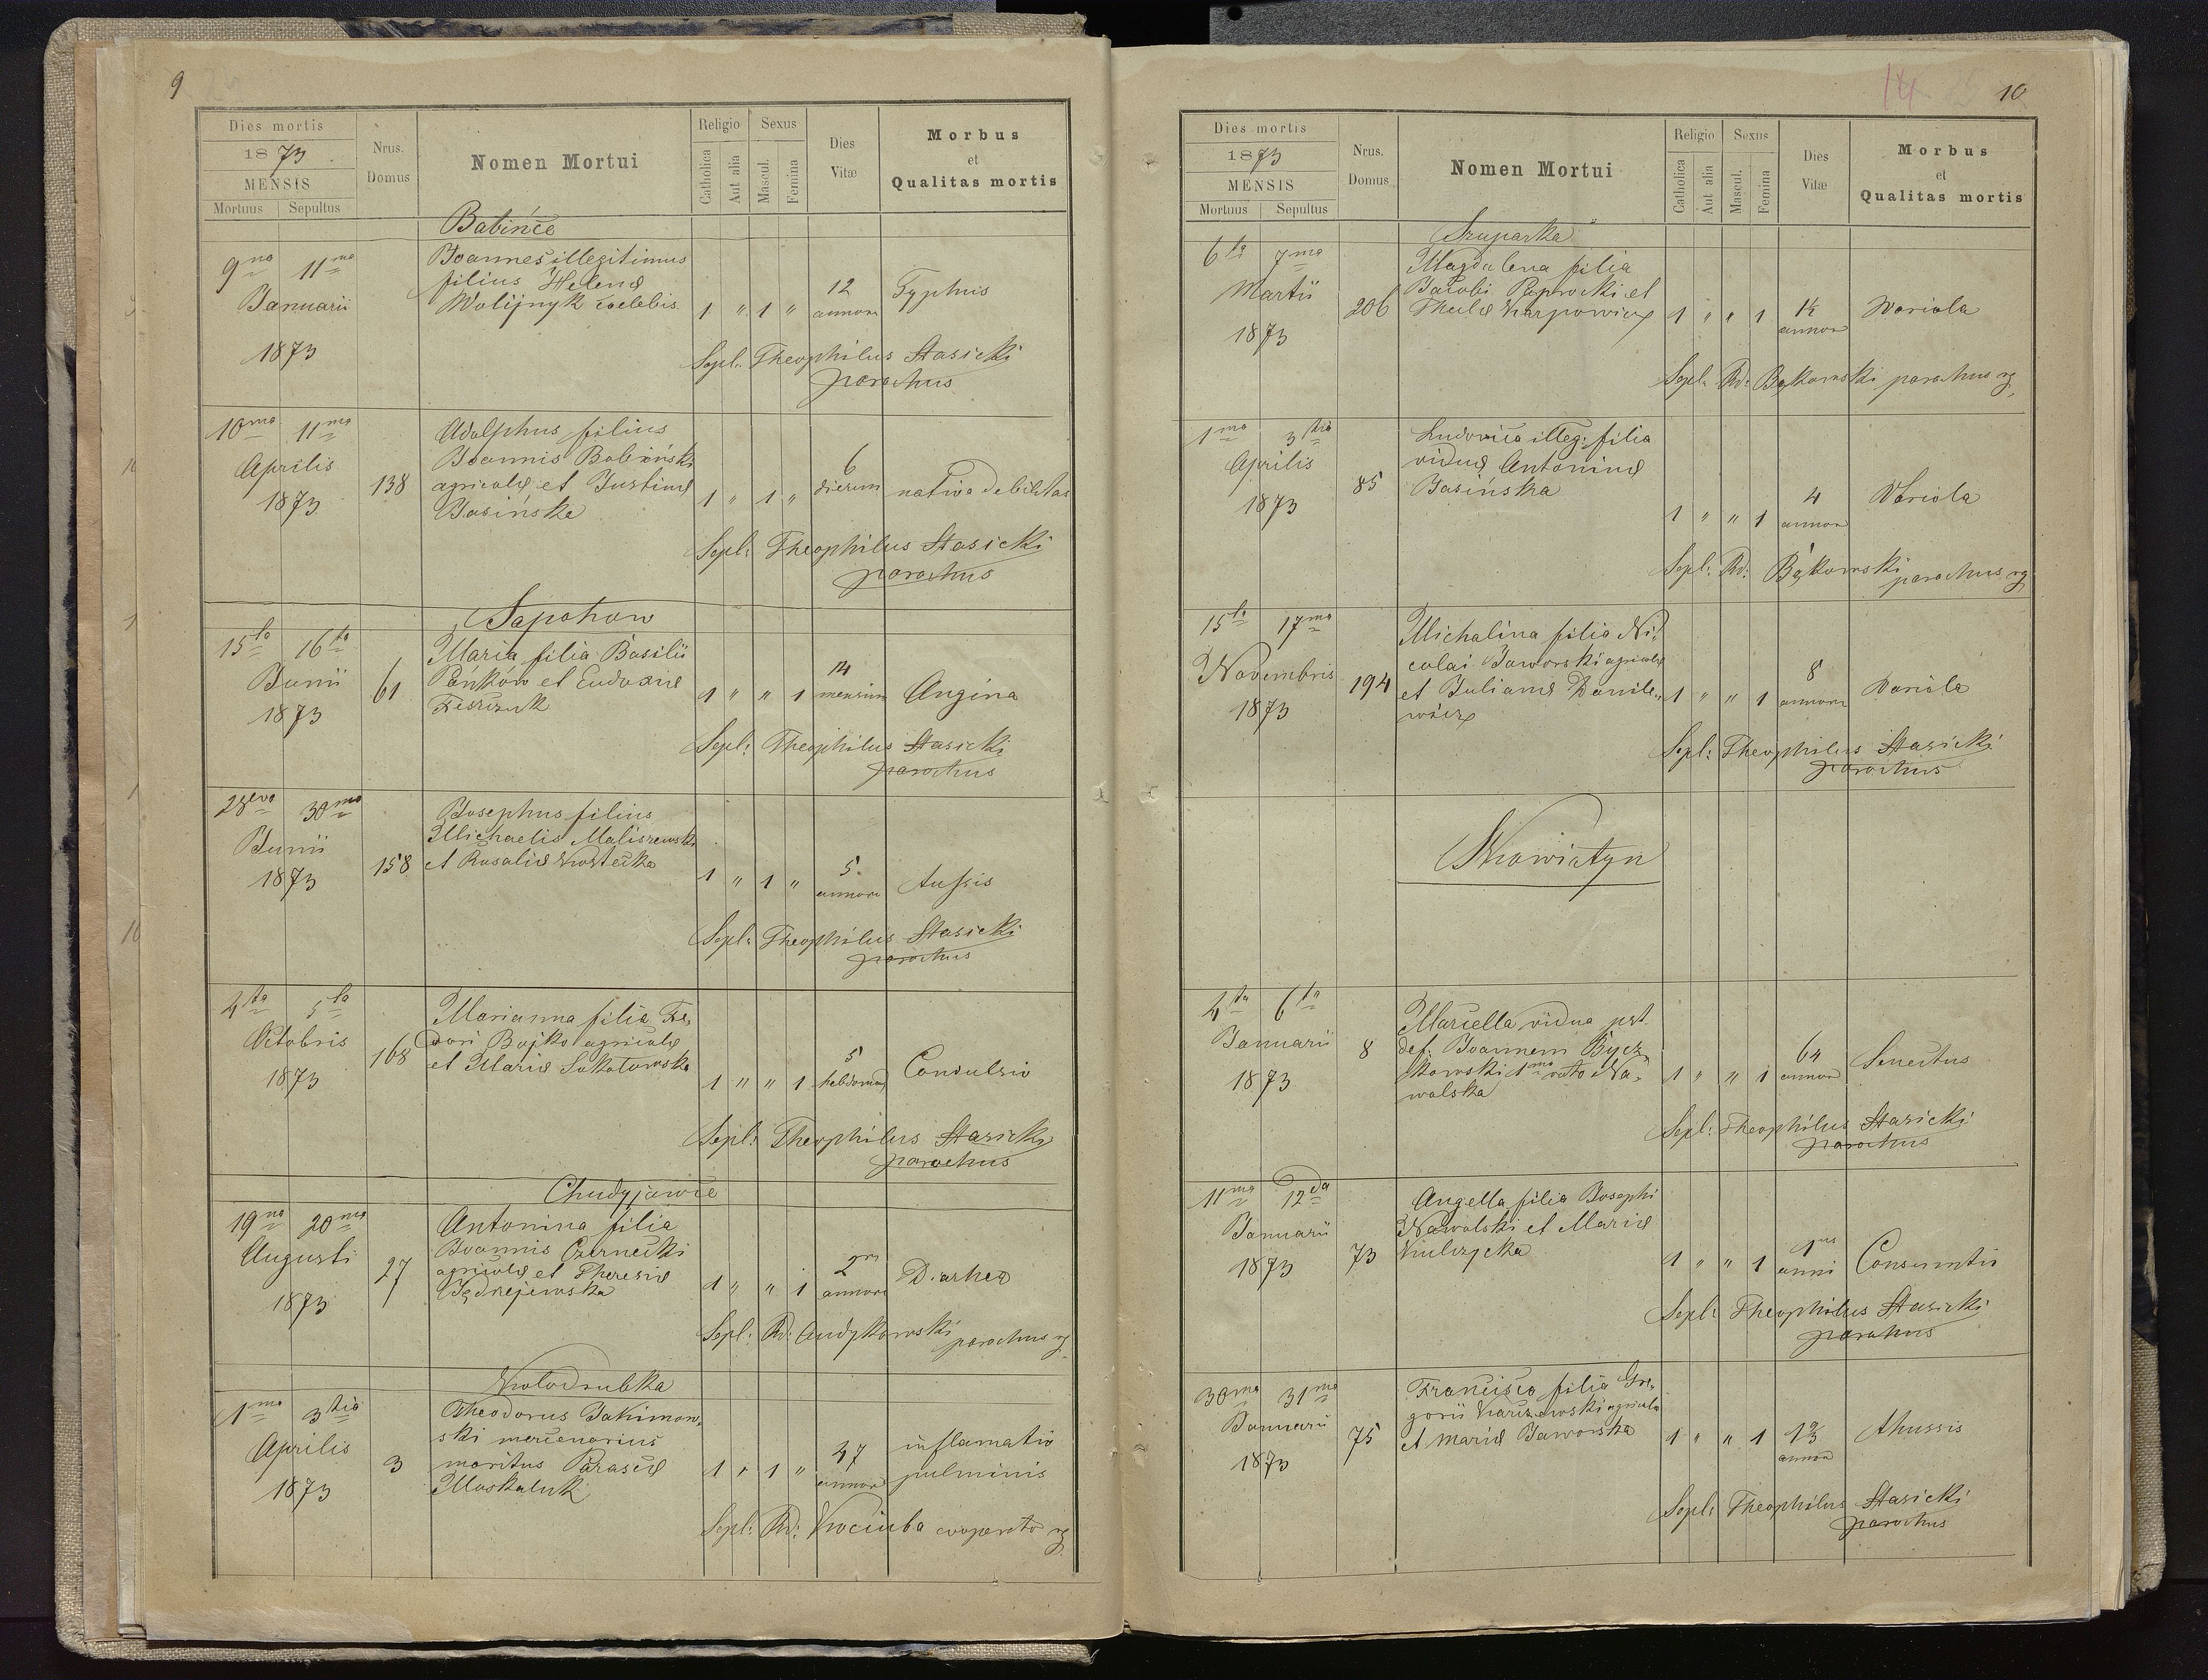 9
Dies mortis
1873
MENSIS
Mortuus Sepultus
Nrus. Domus
Nomen Mortui
Religio
Catholica
Aut alia
Sexus
Mascul.
Femina
Dies Vitæ
Morbus
et
Qualitas mortis
Babińce
9na 11ma
Januarii
1873
Joannes illegitimus
filius Helenæ
Wolijnyk coelebis
1 " 1 "
12
annor
Typhus
Sepl: Theophilus Stasicki
parochus
10ma 11ma
Aprilis
1873
138
Adolphus filius
Joannis Babiński
agricolæ et Justinæ
Jasińska
1 " 1 "
6
dierum
nativa debilitas
Sepl: Theophilus Stasicki
parochus
Sapohow
15ta 16ta
Junii
1873
61
Maria filia Basilii
Pańków et Eudoxiæ
1 " " 1
14
mensium
Angina
Sepl: Theophilus Stasicki
parochus
28va 30ma
Junii
1873
158
Josephus filius
Michaelis Maliszewski
et Rosaliæ
1 " 1 "
5
annor
Tussis
Sepl: Theophilus Stasicki
parochus
4ta 5ta
Octobris
1873
168
Marianna filia Fe„
dori Bojko agricolæ
et Mariæ Sokołowska
1 " " 1
5
hebdomad
Convulsio
Sepl: Theophilus Stasicki
parochus
Chudyjowce
19na 20ma
Augusti
1873
27
Antonina filia
Joannis Czernecki
agricolæ et Theresiæ
Jędrzejewska
1 " " 1
2
annor
Diarhea
Sepl: Rd: Andykowski parochus rg
Kołodrubka
1ma 3tia
Aprilis
1873
3
Theodorus Jakimow„
ski mercenarius
maritus Parascæ
Moskaluk
1 " 1 "
47
annor
inflamatio
pulminis
Sepl: Rd: Kociuba cooperato rg
10
Dies mortis
1873
MENSIS
Mortuus Sepultus
Nrus. Domus
Nomen Mortui
Religio
Catholica
Aut alia
Sexus
Mascul.
Femina
Dies Vitæ
Morbus
et
Qualitas mortis
Szuparka
6ta 7ma
Martii
1873
206
Magdalena filia
Jacobi Paprocki et
Theclæ Karpowicz
1 " " 1
1½
annor
Variola
Sepl: Rd: Bykowski parochus rg
1ma 3tia
Aprilis
1873
85
Ludovica illeg: filia
viduæ Antoninæ
Jasińska
1 " " 1
4
annor
Variola
Sepl: Rd: Bykowski parochus rg
15ta 17ma
Novembris
1873
194
Michalina filia Ni„
colai Jaworski agricolæ
et Julianæ Danile„
wicz
1 " " 1
8
annor
Variola
Sepl: Theophilus Stasicki
parochus
Kowiatyn
4ta 6ta
Januarii
1873
8
Marcella vidua pst.
def: Joannem Bycz„
kowski 1mo voto Na„
walska
1 " " 1
64
annor
Senectus
Sepl: Theophilus Stasicki
parochus
11ma 12da
Januarii
1873
73
Angella filia Josephi
Nawalski et Mariæ
Kulczycka
1 " " 1
1us
anni
Consumtio
Sepl: Theophilus Stasicki
parochus
30ma 31ma
Januarii
1873
75
Francisca filia Gre„
gorii Karczewski agricolæ
et Mariæ Jaworska
1 " " 1
annor
thussis
Sepl: Theophilus Stasicki
parochus